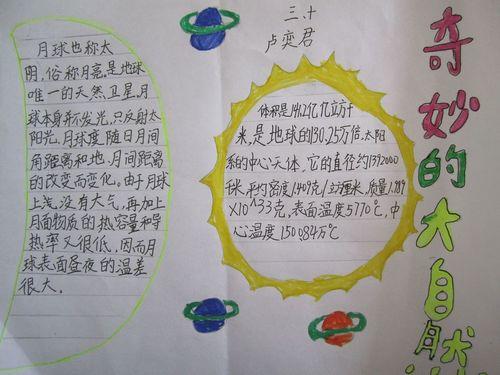 月球也称太
阴,俗称月亮,是地球
唯一的天然卫星,月
球本身并不发光,只反射太
阳光。月球度随日月间
角距离和地,月间距离
的改变而变化。由于月球
上浅没有大气,再加上
月面物质的热容量和导
热率又很低,因而月
球表面昼夜的温差
很大。
三.十
卢奕君
体积是1412亿亿立方千
米,是地球的130.25万倍.太阳
系的中心天体,它的直径约1392000
千米,平均密度1.409克/立方厘米,质量1.989
×10^33克,表面温度5770℃,中
心温度1500.84万℃
奇妙的大自然